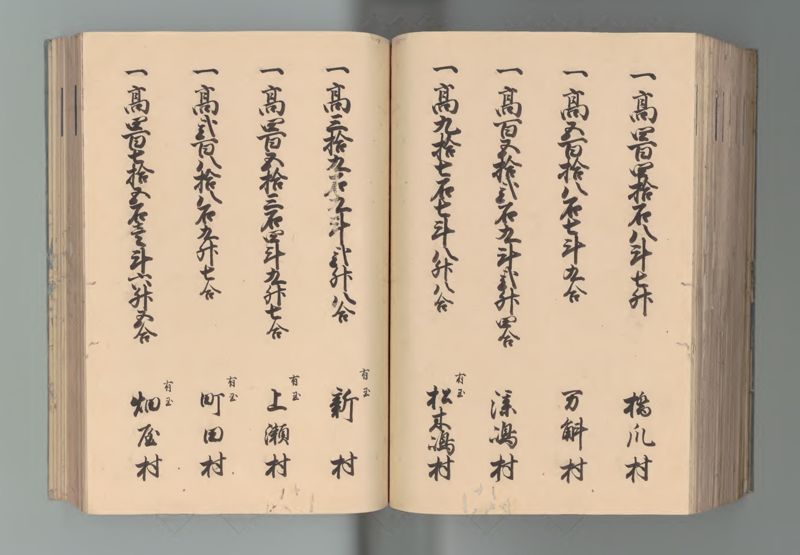 一高四百四拾石八斗七升 橋爪村
一高五百拾八石七斗九合 万斛村
一高百五拾弐石九斗弐升四合 漆嶋村
一高九拾七石七斗八升八合 有玉 松木嶋村
一高三拾九石九斗弐升八合 有玉 新村
一高四百五拾三石四斗九升七合 有玉 上瀬村
一高弐百八拾八石九升七合 有玉 町田村
一高四百七拾五石壱斗六升五合 有玉 畑屋村